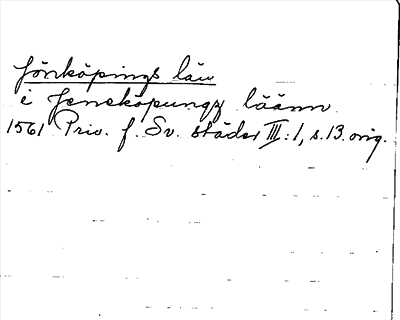 Jönköpings län
i Jeneköpungz läänn
1561 Priv. f. Sv. städer III:1, s. 13. orig.